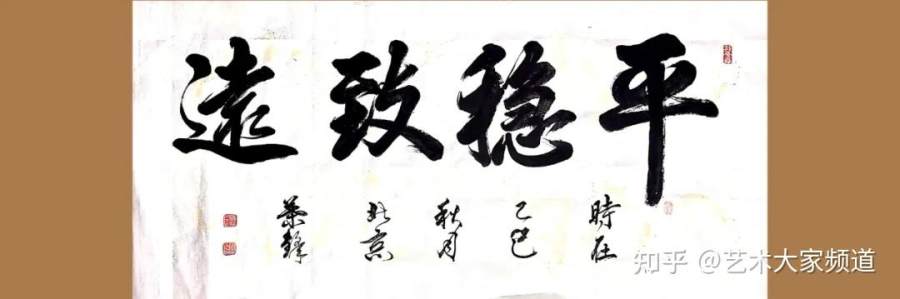 平稳致遠
時在
乙巳
秋月
北京
知乎 @艺术大家频道